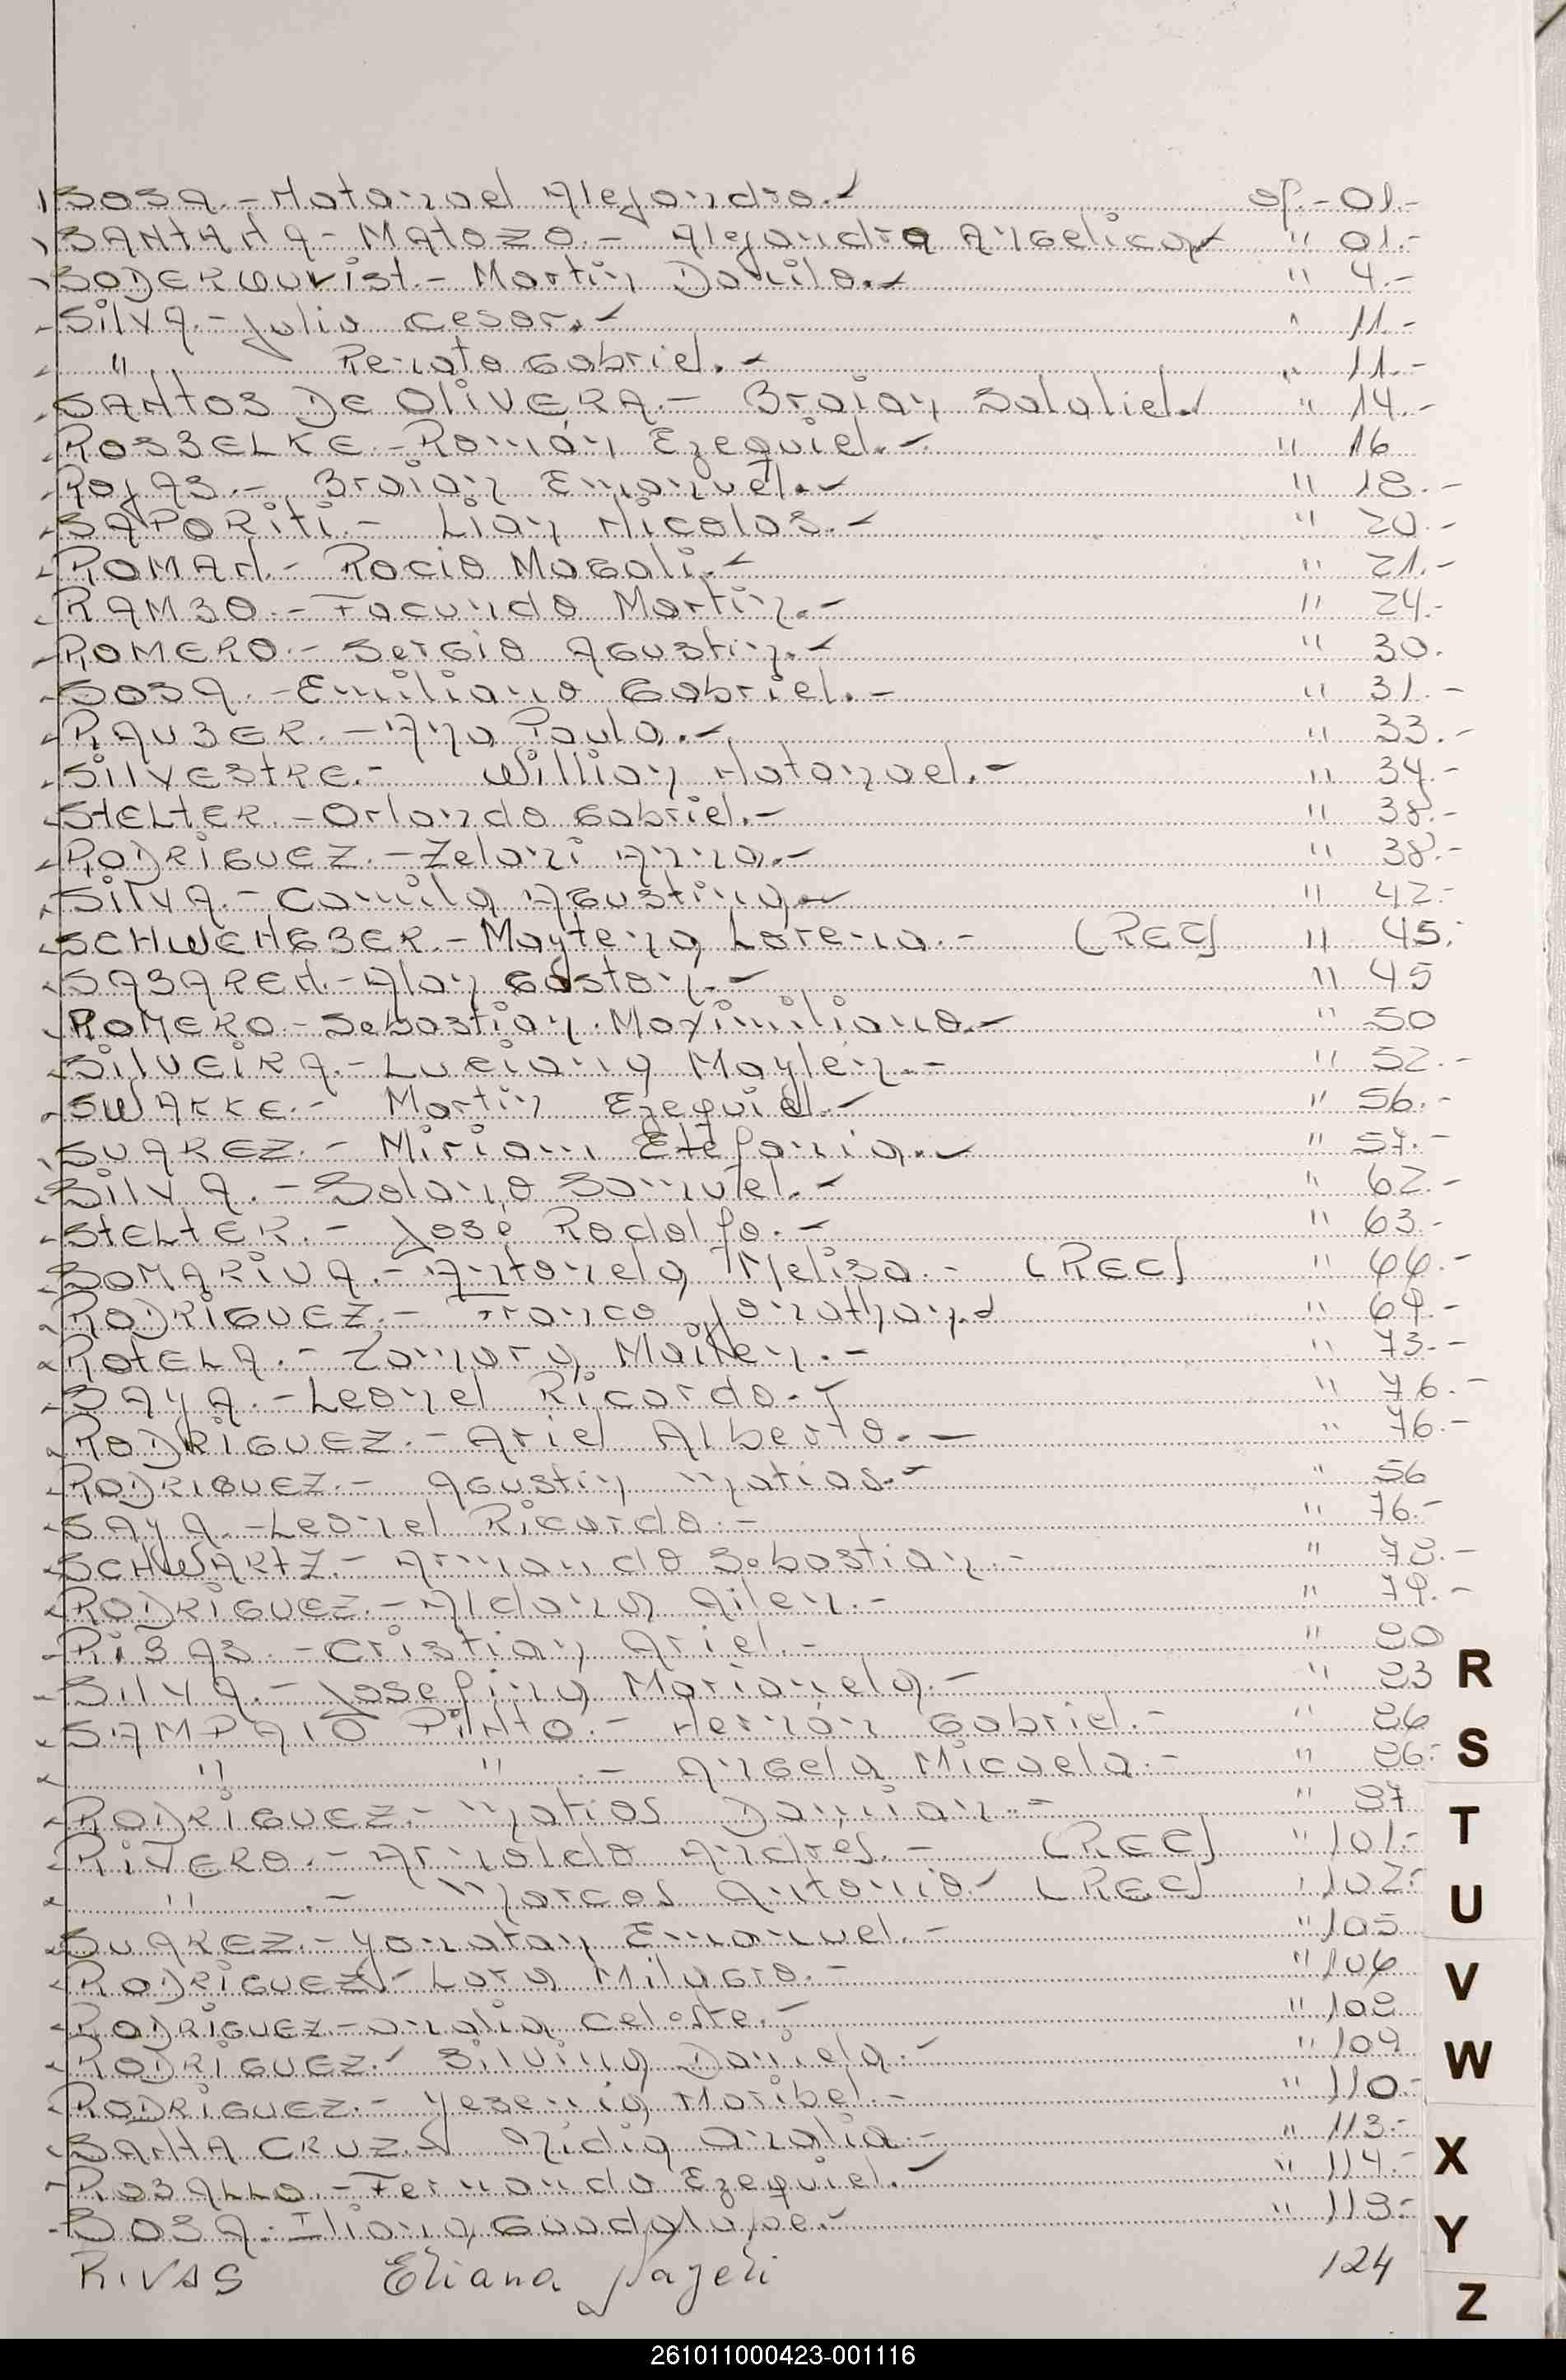 SOSA.- Natanael Alejandro.- sf.- 01.-
SANTANA - MATOZO.- Alejandra Angelica.- " 01.-
SODERQUVist.- Martin Danilo.- " 4.-
SilVA.- Julio Cesar.- " 11.-
" Renato Gabriel.- " 11.-
SANtOS DE OliVERA.- Braian Salaliel.- " 14.-
ROSBELKE.- Román Ezequiel.- " 16
ROJAS.- Braian Emanuel.- " 18.-
SAPORiti.- Lian Nicolas.- " 20.-
ROMAN.- Rocio Magali.- " 21.-
RAMBO.- Facundo Martin.- " 24.-
ROMERO.- Sergio Agustin.- " 30.
SOSA.- Emiliano Gabriel.- " 31.-
RAUBER.- Ana Paula.- " 33.-
SilVEStRE.- Willian Natanael.- " 34.-
StELtER.- Orlando Gabriel.- " 38.-
RODRiGUEZ.- Zelani Anna.- " 38.-
SilVA.- Camila Agustina.- " 42.-
SCHWENGBER.- Maytena Lorena.- (REC) " 45.-
SABAREN.- Alan Gaston.- " 45
ROMERO.- Sebastian Maximiliano.- " 50
SilVEiRA.- Luciana Maylén.- " 52.-
SWAKKE.- Martin Ezequiel.- " 56.-
SUAREZ.- Miriam Etefania.- " 57.-
SilVA.- Solano Samuel.- " 62.-
StELtER.- José Rodolfo.- " 63.-
SOMARiVA.- Antonela Melisa.- (REC) " 66.-
RODRiGUEZ.- Franco Jonathan.- " 69.-
ROtELA.- Zamara Mailen.- " 73.-
SAYA.- Leonel Ricardo.- " 76.-
RODRiGUEZ.- Ariel Alberto.- " 76.-
RODRIGUEZ.- Agustin Matias.- " 56
SAYA.- Leonel Ricardo.- " 76.-
SCHWARtZ.- Armando Sebastian.- " 78.-
RODRiGUEZ.- Aldana Ailen.- " 79.-
RiBAS.- Cristian Ariel.- " 80
SilVA.- Josefina Marianela.- " 83
SAMPAiO PiNtO.- Hernán Gabriel.- " 86
" " .- Angela Micaela.- " 86.-
RODRiGUEZ.- Matias Damian.- " 87
RiVERO.- Arnoldo Andres.- (REC) " 101.-
" .- Marcos Antonio.- (REC) " 102.-
SUAREZ.- Yonatan Emanuel.- " 105
RODRiGUEZ.- Lara Milagro.- " 106
RODRiGUEZ.- analia Celeste.- " 108
RODRiGUEZ.- Silvina Daniela.- " 109
RODRiGUEZ.- Yesenia Maribel.- " 110.-
SANtA CRUZ.- Nidia analia.- " 113.-
ROBALLO.- Fernando Ezequiel.- " 114.-
SOSA.- Iliana Guadalupe.- " 118.-
RIVAS Eliana 124
R
S
T
U
V
W
X
Y
Z
261011000423-001116